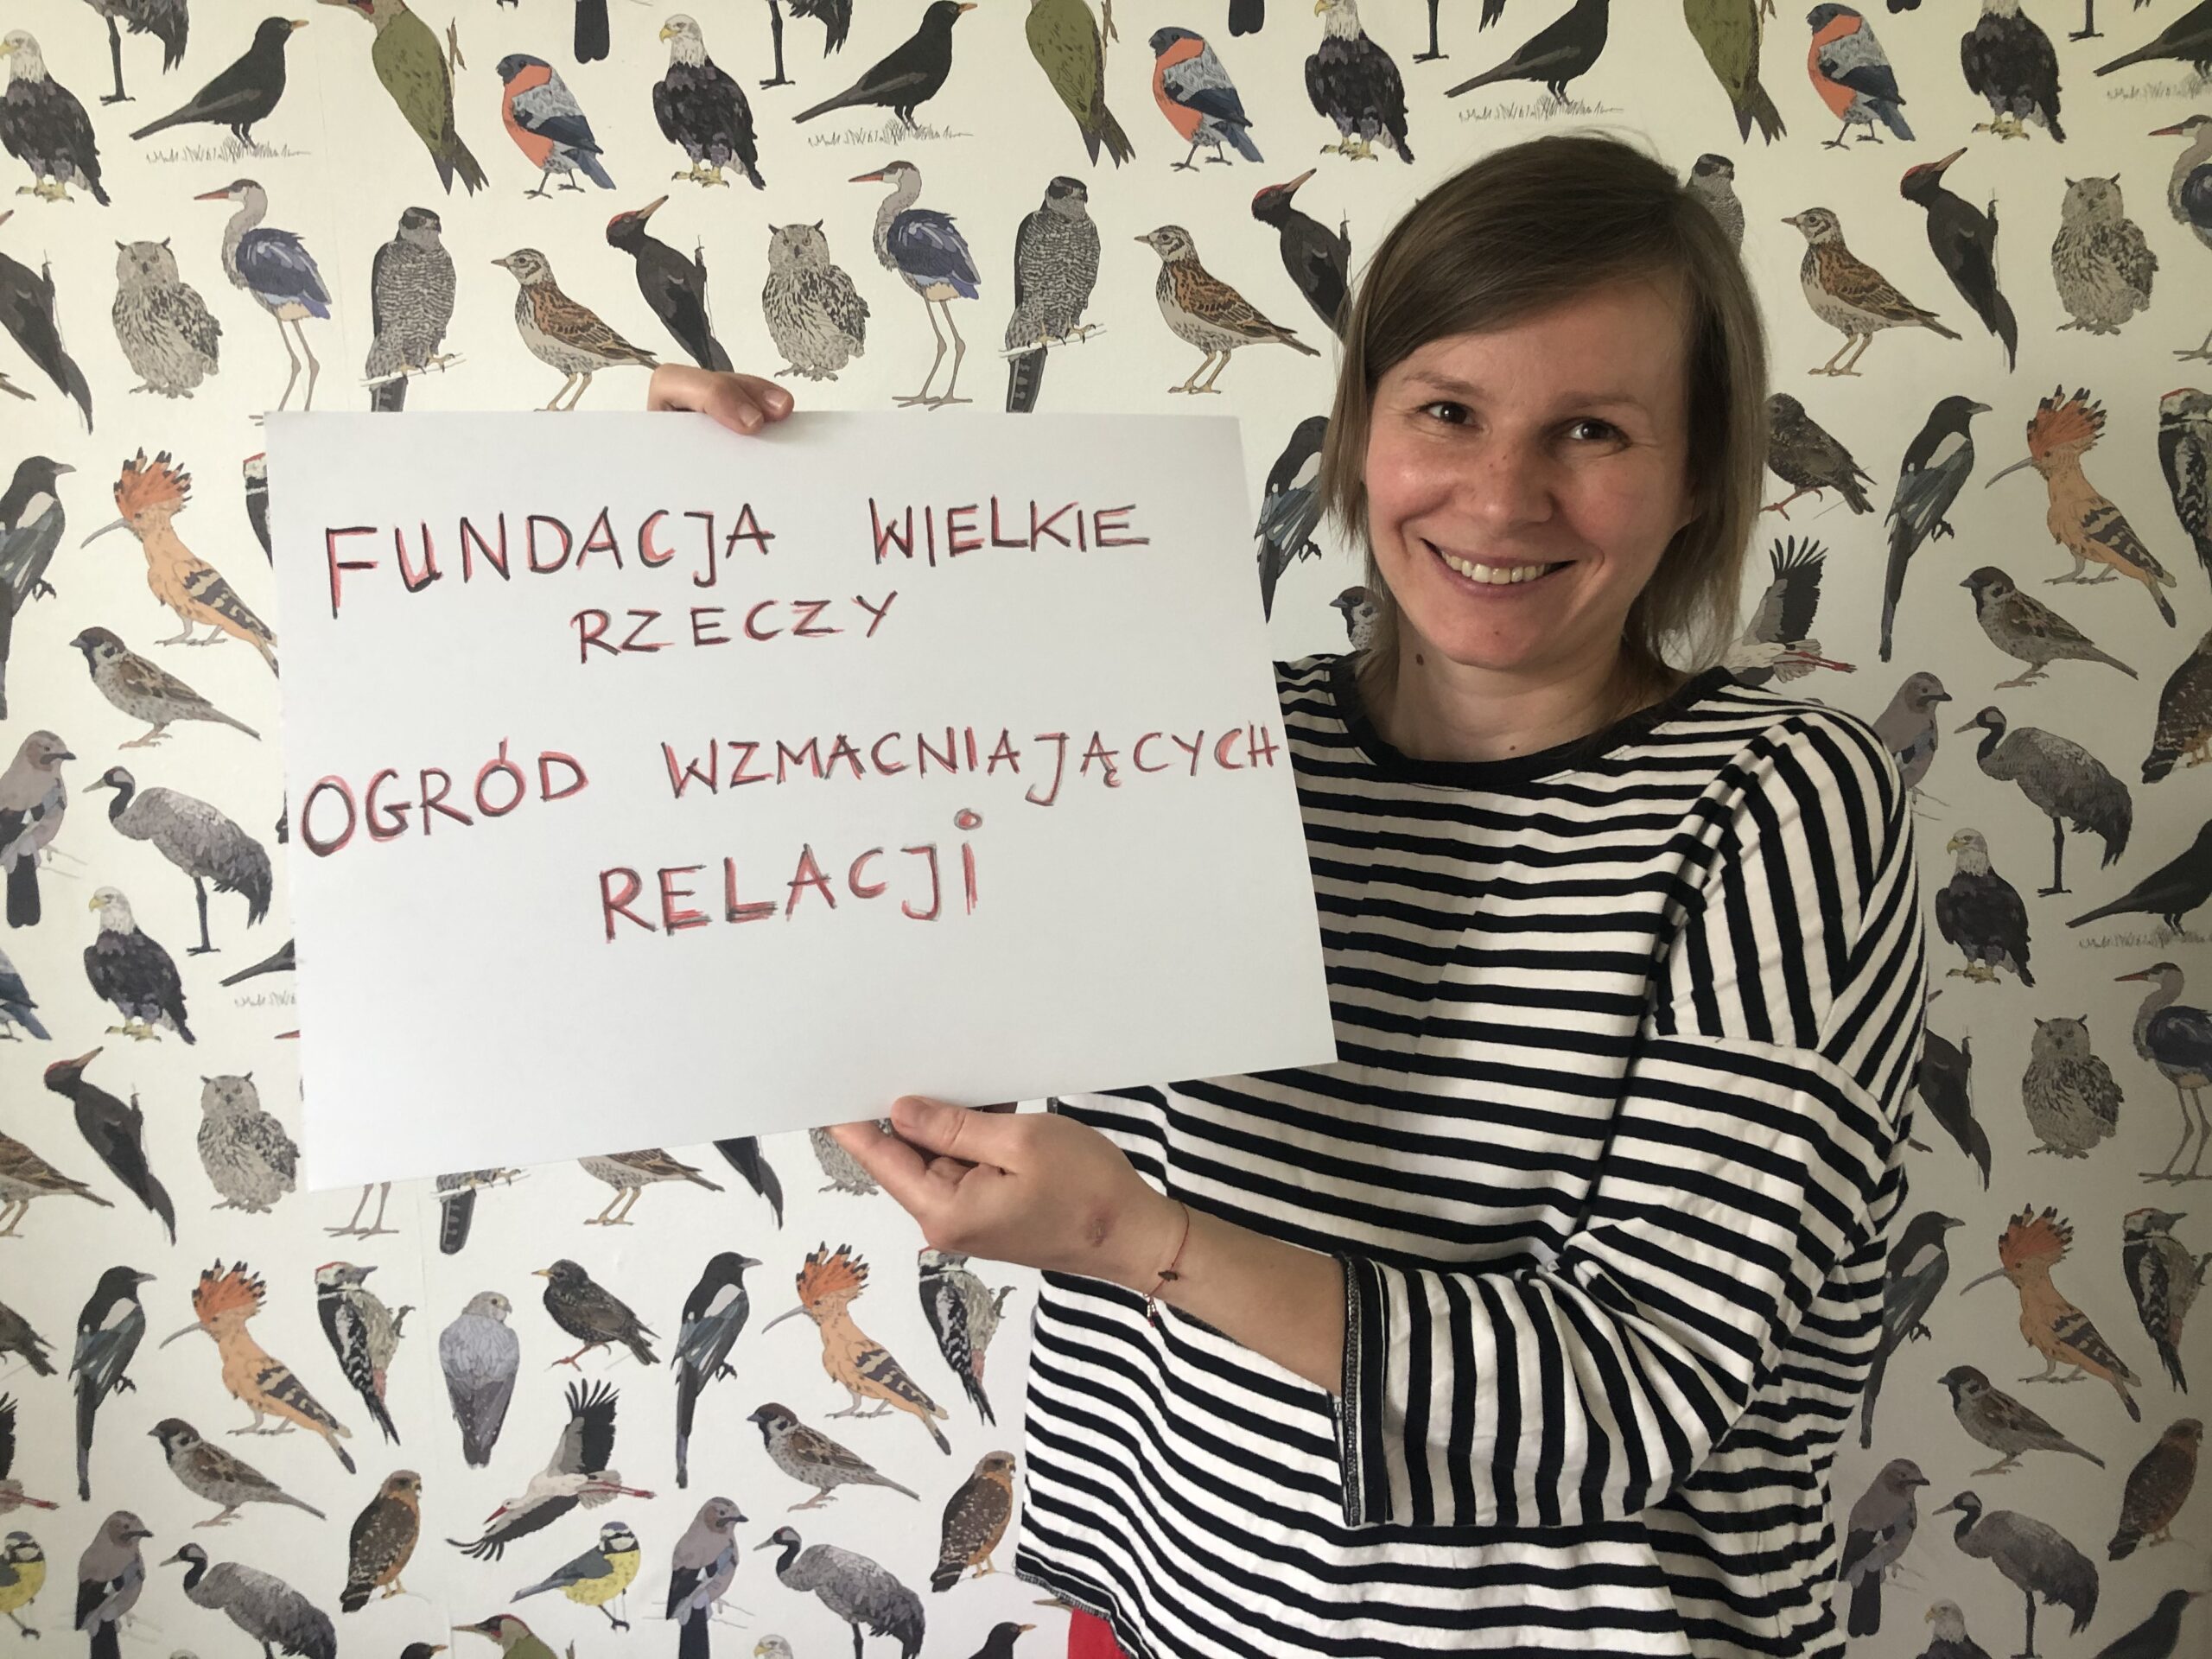 FUNDACJA WIELKIE
RZECZY
OGRÓD WZMACNIAJĄCYCH
RELACJi